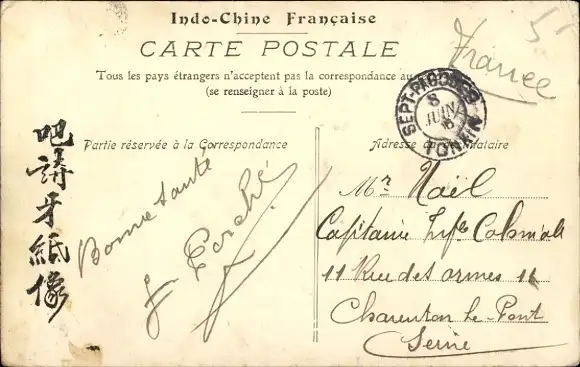 Indo-Chine Française
CARTE POSTALE
Tous les pays étrangers n'acceptent pas la correspondance au
(se renseigner à la poste)
France
5
SEPT-PAGODES
8
JUIN
TONKIN
Partie réservée à la Correspondance
Adresse du destinataire
吧
請
牙
紙
像
Bonne santé
Mr Noël
Capitaine Infie Coloniale
11 Rue des ormes 11
Charenton le Pont
Seine